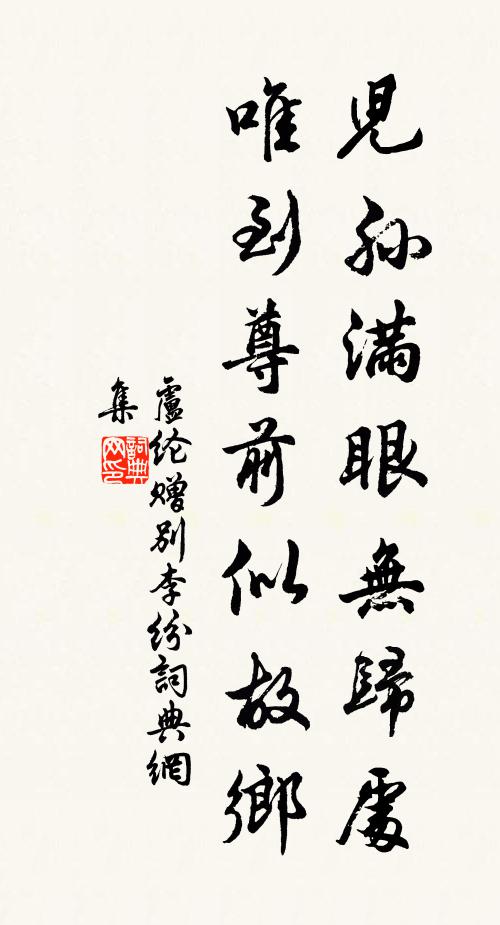 兒孫滿眼無歸處
唯到尊前似故鄉
盧纶赠别李纷詞典網
集
詞典網印